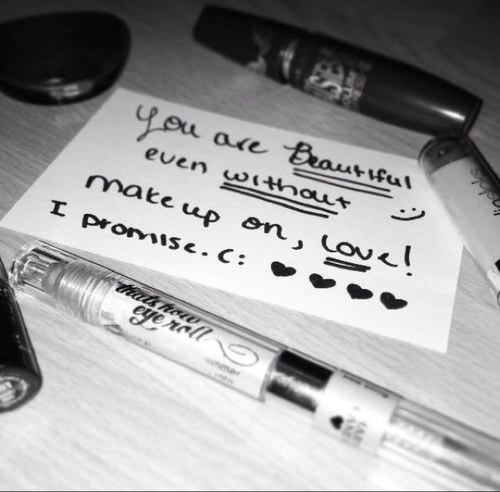 You are Beautiful
even without :)
makeup on, love!
I promise. c: ♥ ♥ ♥ ♥
that's how
eye roll